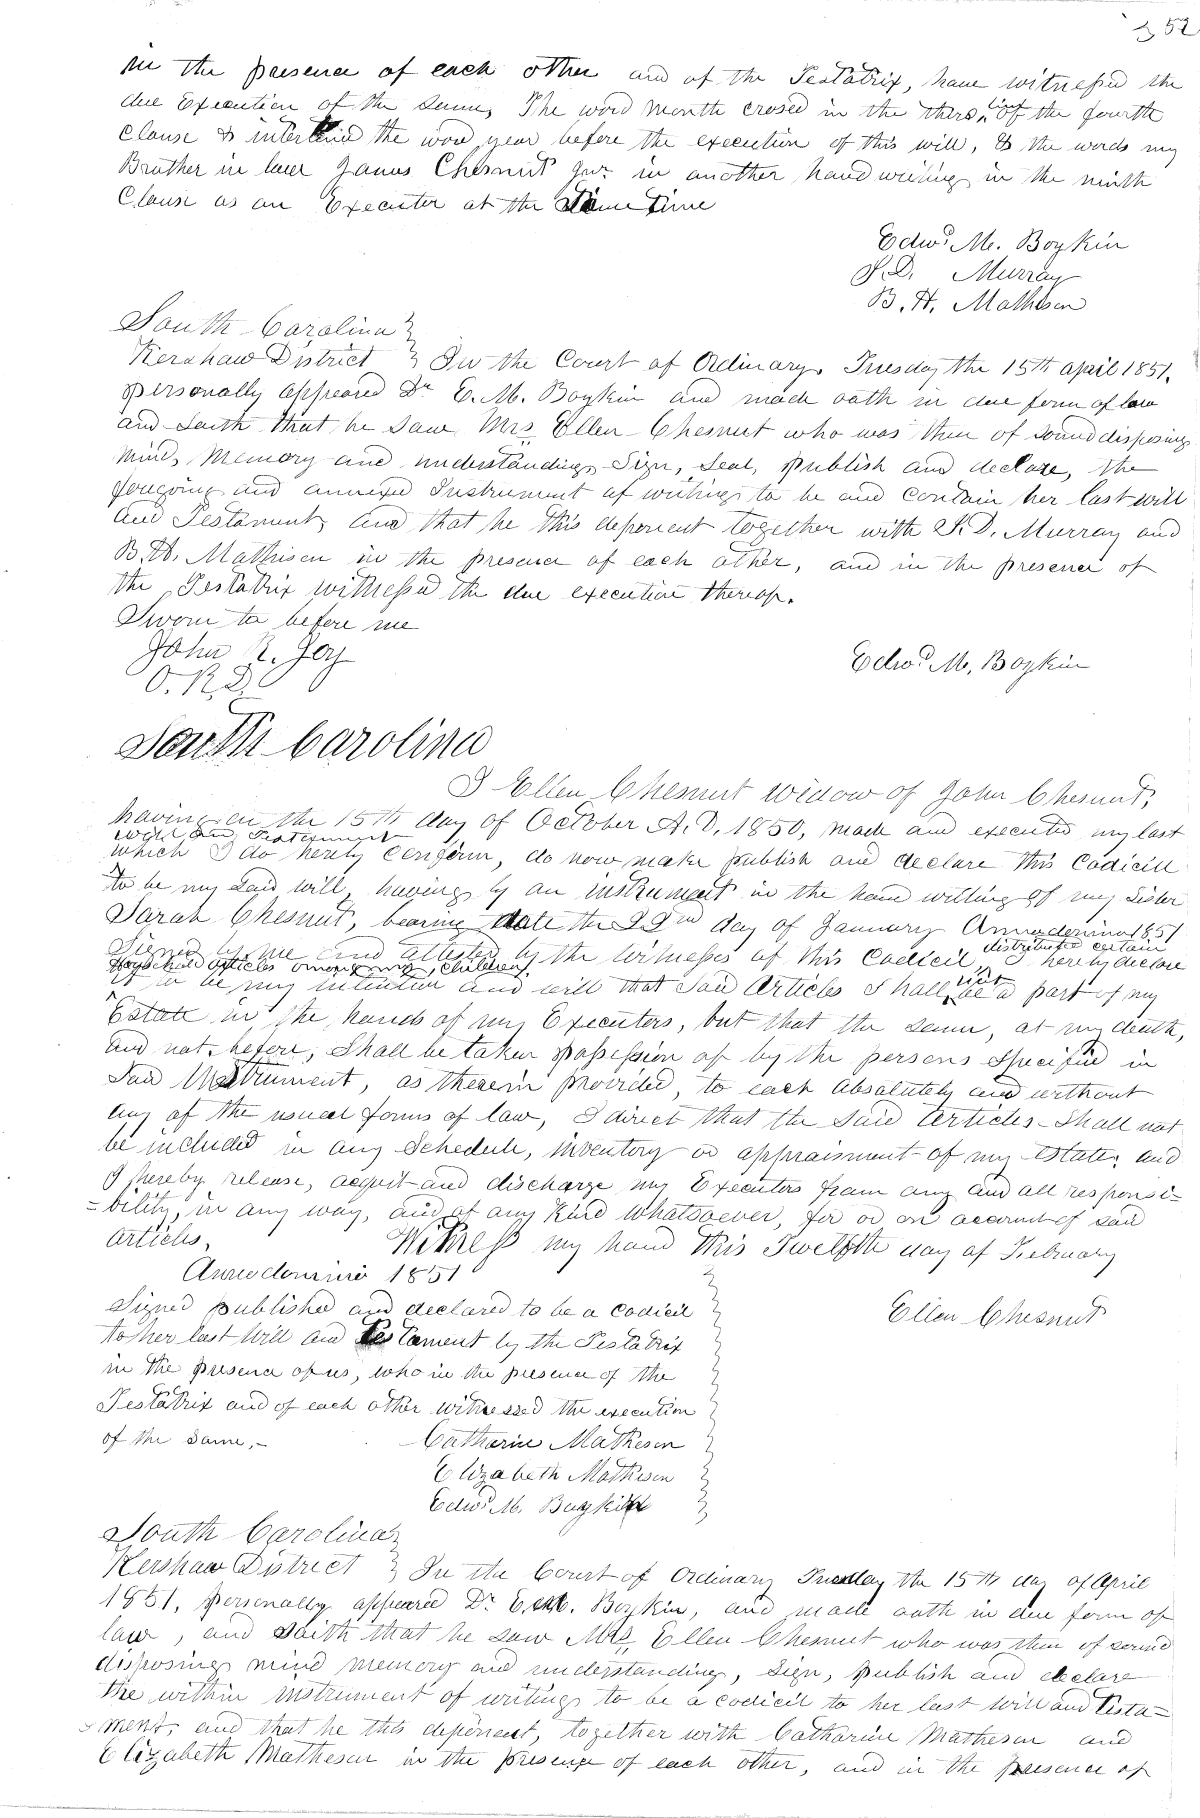 52
in the presence of each other and of the Testatrix, have witnessed the
due Execution of the same, The word month erased in the third line of the fourth
Clause & interlined the word year before the execution of this will, & the words my
Brother in law James Chesnut Jur. in another hand writing in the ninth
Clause as an Executor at the same time
Edwd M. Boykin
J.D. Murray
B. H. Matheson
South Carolina }
Kershaw District } In the Court of Ordinary. Tuesday the 15th april 1851,
personally appeared Dr E. M. Boykin and made oath in due form of law
and saith that he saw Mrs Ellen Chesnut who was then of sound disposing
mind, memory and understanding Sign, seal, publish and declare, the
foregoing and annexed Instrument of writing to be and contain her last will
and Testament, and that he this deponent together with J.D. Murray and
B. H. Mathison in the presence of each other, and in the presence of
the Testatrix witnessed the due execution thereof.
Sworn to before me
John R. Joy
O. K. D.
Edwd M. Boykin
South Carolina
I Ellen Chesnut widow of John Chesnut,
having on the 15th day of October A. D. 1850, made and executed my last
will and Testament
which I do hereby confirm, do now make publish and declare this Codicill
to be my said will, having by an instrument in the hand writing of my Sister
Sarah Chesnut, bearing date the 22nd day of January Annodomino 1851
Signed by me and attested by the witnesses of this Codicil, distributed certain
household articles among my children, I hereby declare
it to be my intention and will that said articles shall not be a part of my
Estate in the hands of my Executors, but that the same, at my death,
and not before, Shall be taken possession of by the persons specified in
said Instrument, as therein provided, to each absolutely and without
any of the usual forms of law, I direct that the said articles shall not
be included in any Schedule, inventory or appraisment of my estate; and
I hereby release, acquit and discharge my Executors from any and all responsi=
=bility, in any way, and of any kind whatsoever, for or on account of said
articles, Witness my hand this Twelfth day of February
Annodomini 1851
Signed published and declared to be a codicil
to her last Will and Testament by the Testatrix
in the presence of us, who in the presence of the
Testatrix and of each other witnessed the execution
of the same,-
Ellen Chesnut
Catharine Matheson
Elizabeth Matheson
Edwd M. Boykin
South Carolina }
Kershaw District } In the Court of Ordinary Tuesday the 15th day of April
1851, personally appeared Dr E. M. Boykin, and made oath in due form of
law, and saith that he saw Mrs Ellen Chesnut who was then of sound
disposing mind memory and understanding, sign, publish and declare
the within instrument of writing to be a codicil to her last will and Testa=
ment, and that he this deponent, together with Catharine Matheson and
Elizabeth Matheson in the presence of each other, and in the presence of